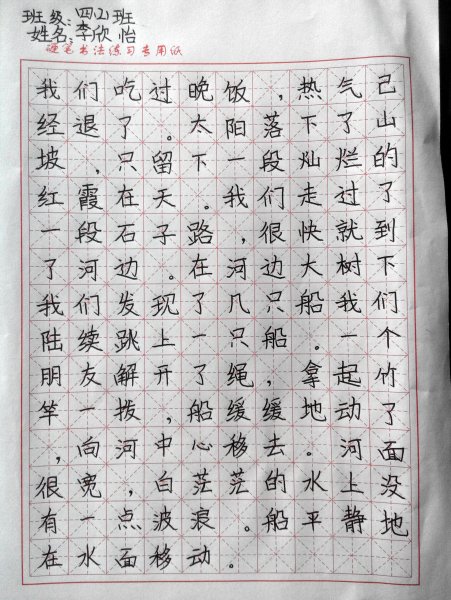 班级:四(2)班
姓名:李欣怡
硬笔书法练习专用纸
我们吃过晚饭，热气已
经退了。太阳落下了山
坡，只留下一段灿烂的
红霞在天。我们走过了
一段石子路，很快就到
了河边。在河边大树下
我们发现了几只船我们
陆续跳上一只船。一个
朋友解开了绳，拿起竹
竿一拨，船缓缓地动了
，向河中心移去。河面
很宽，白茫茫的水上没
有一点波浪。船平静地
在水面移动。